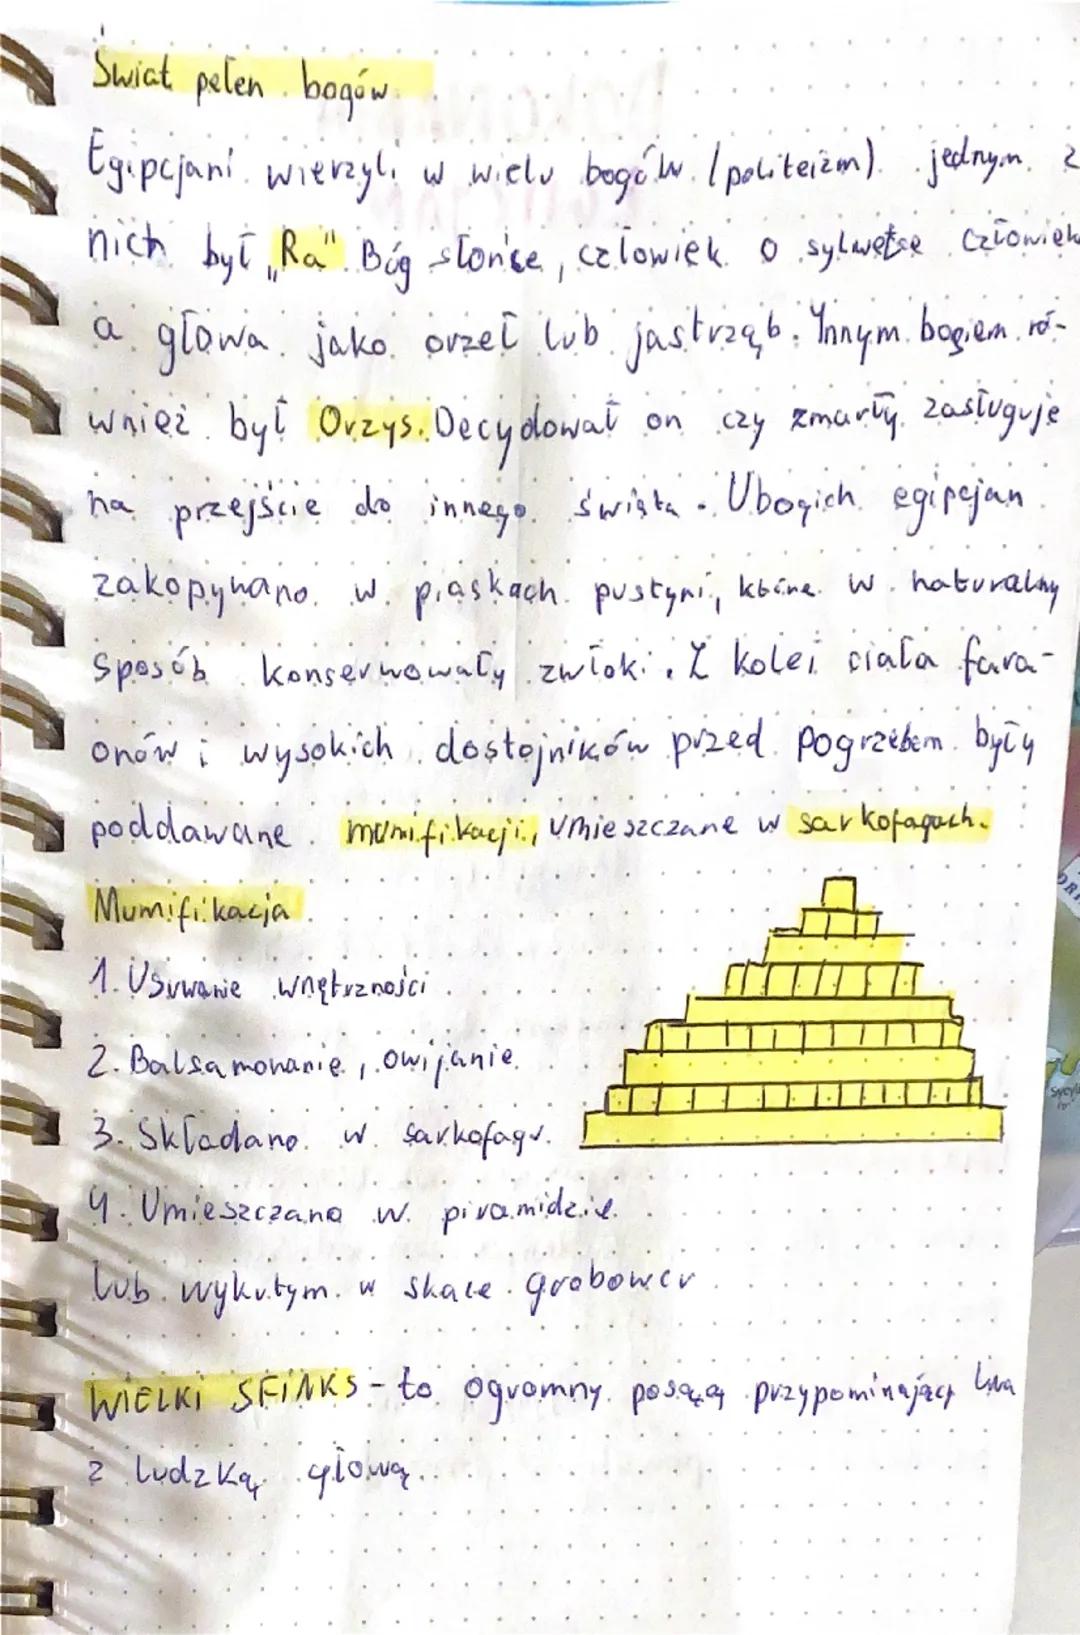 Świat pełen bogów
Egipcjani wierzyli w wielu bogów (politeizm). jednym z
nich był „Ra". Bóg słońce, człowiek o sylwetce człowiek
a głowa jako orzeł lub jastrząb. Innym bogiem ró-
wnież był Orzys. Decydował on czy zmarły zasługuje
na przejście do innego świata. Ubogich egipcjan
zakopywano w piaskach pustyni, które w naturalny
sposób konserwowały zwłoki. Z kolei ciała fara-
onów i wysokich dostojników przed pogrzebem były
poddawane mumifikacji, umieszczane w sarkofagach.
Mumifikacja
1. Usuwanie wnętrzności
2. Balsamowanie, owijanie.
3. Składano w sarkofagu.
4. Umieszczano w piramidzie.
lub wykutym w skale grobowcu
WIELKI SFINKS - to ogromny posąg przypominający lwa
z ludzką głową.